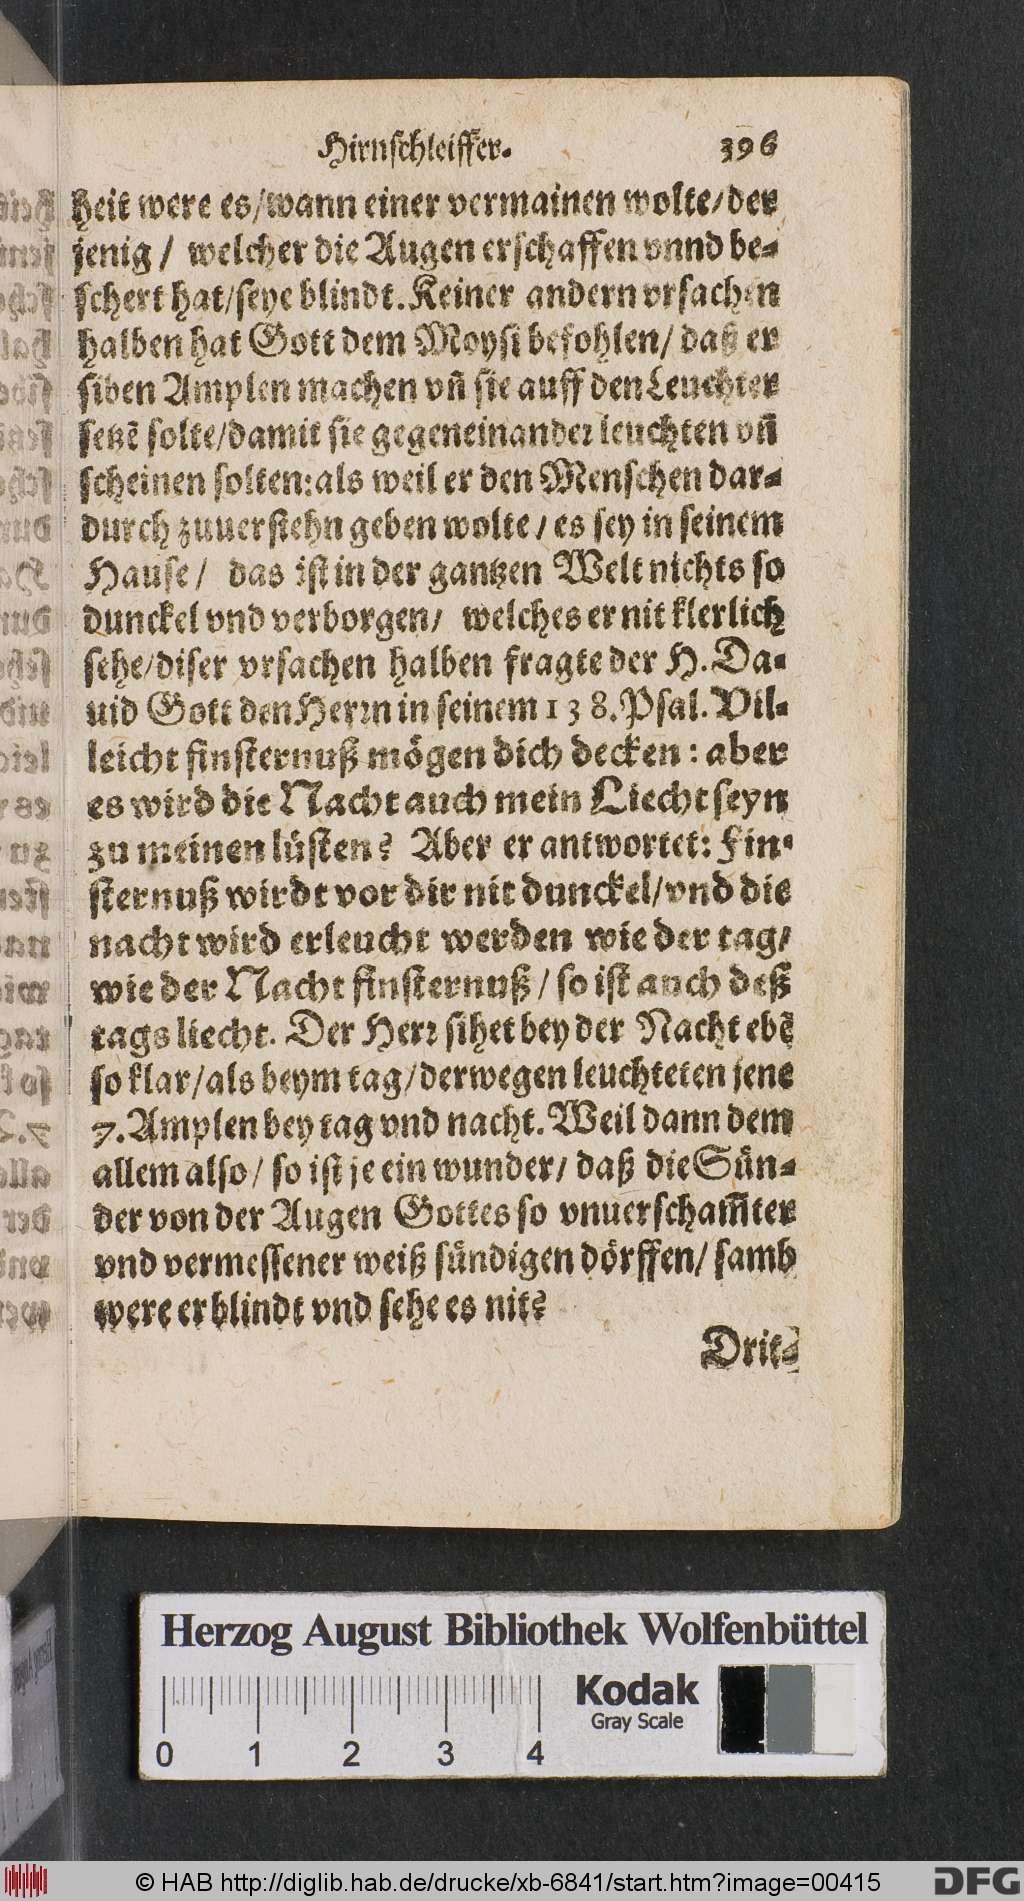 Hirnschleiffer. 396
heit were es/wann einer vermainen wolte/der
jenig / welcher die Augen erschaffen vnnd be-
schert hat/seye blindt. Keiner andern vrsachen
halben hat Gott dem Moysi befohlen/ daß er
siben Amplen machen vñ sie auff den Leuchter
setzē solte/damit sie gegeneinander leuchten vñ
scheinen solten: als weil er den Menschen dar-
durch zuuerstehn geben wolte / es sey in seinem
Hause / das ist in der gantzen Welt nichts so
dunckel vnd verborgen/ welches er nit klerlich
sehe/diser vrsachen halben fragte der H. Da-
uid Gott den Herrn in seinem 138. Psal. Vil-
leicht finsternuß mögen dich decken : aber
es wird die Nacht auch mein Liecht seyn
zu meinen lüsten? Aber er antwortet: Fin-
sternuß wirdt vor dir nit dunckel/vnd die
nacht wird erleucht werden wie der tag/
wie der Nacht finsternuß / so ist auch deß
tags liecht. Der Herr sihet bey der Nacht ebē
so klar/als beym tag/derwegen leuchteten jene
7. Amplen bey tag vnd nacht. Weil dann dem
allem also/ so ist je ein wunder/ daß die Sün-
der von der Augen Gottes so vnuerscham̃ter
vnd vermessener weiß sündigen dörffen/ samb
were er blindt vnd sehe es nit?
Drit-
Herzog August Bibliothek Wolfenbüttel
Kodak
Gray Scale
0 1 2 3 4
© HAB http://diglib.hab.de/drucke/xb-6841/start.htm?image=00415
DFG